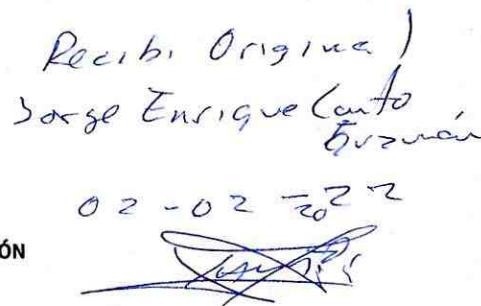 Recibi Original
Jorge Enrique Canto
Guzmán
02-02-2022
ÓN